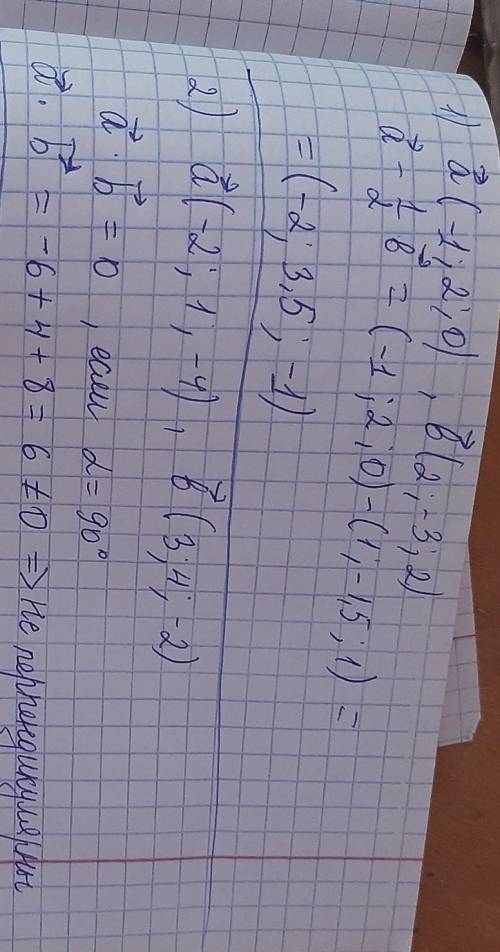 1) a⃗ (-1; 2; 0), b⃗ (2; -3; 2)
a⃗ - 1/2 b⃗ = (-1; 2; 0) - (1; -1,5; 1) =
= (-2; 3,5; -1)
2) a⃗ (-2; 1; -4), b⃗ (3; 4; -2)
a⃗ · b⃗ = 0, если α = 90°
a⃗ · b⃗ = -6 + 4 + 8 = 6 ≠ 0 => Не перпендикулярны